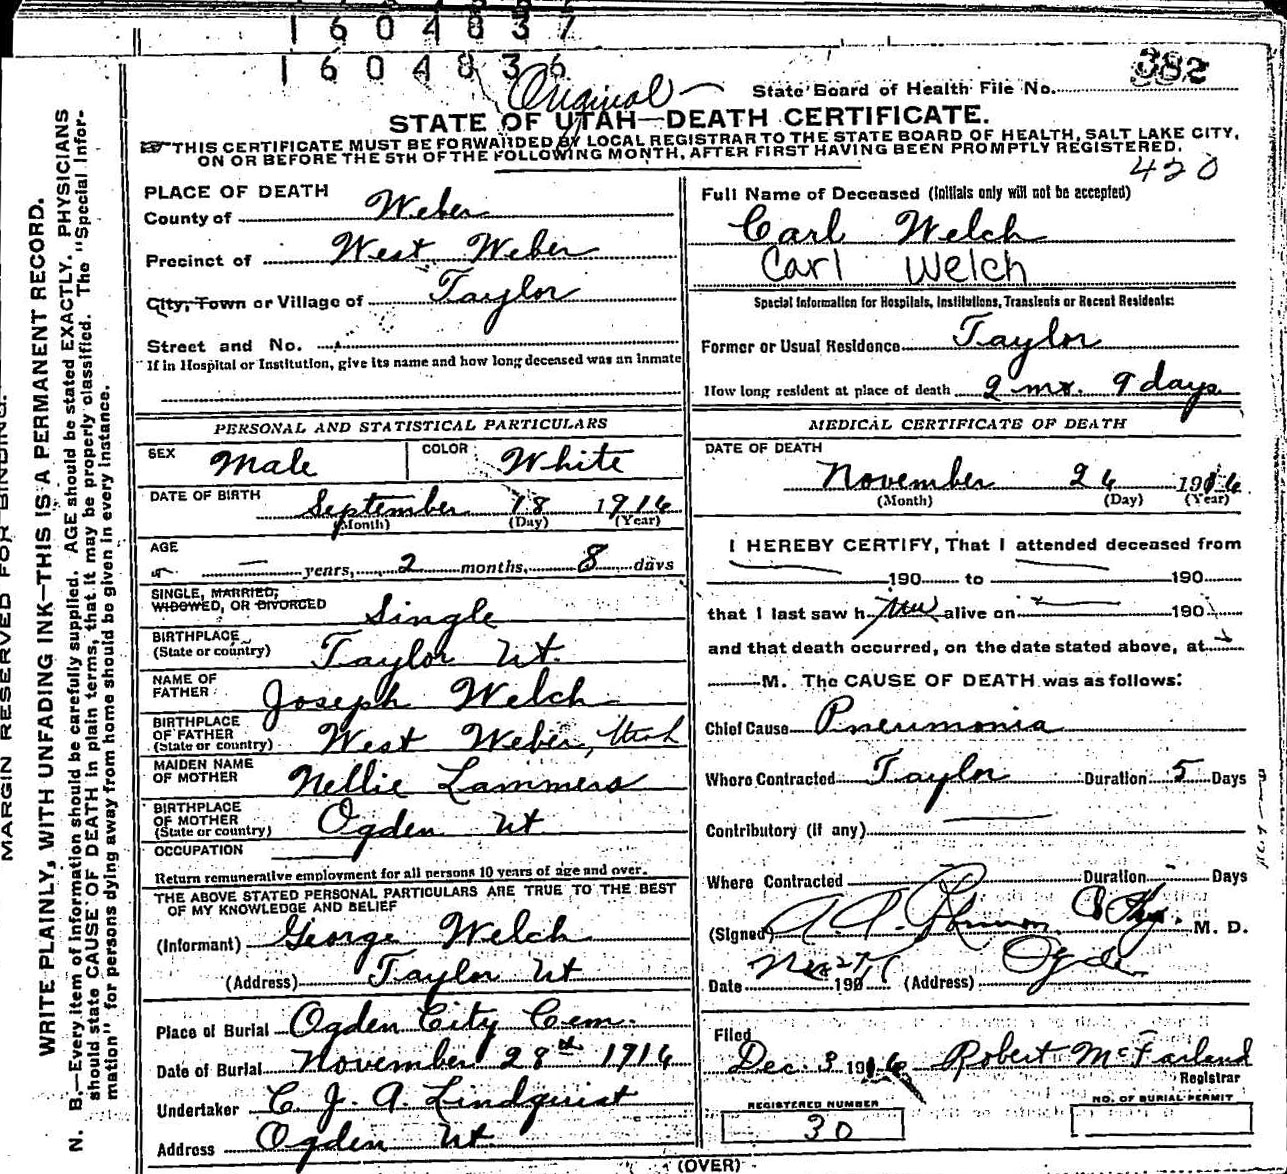 1604837
1604836
Original
382
State Board of Health File No.
STATE OF UTAH—DEATH CERTIFICATE.
THIS CERTIFICATE MUST BE FORWARDED BY LOCAL REGISTRAR TO THE STATE BOARD OF HEALTH, SALT LAKE CITY,
ON OR BEFORE THE 5TH OF THE FOLLOWING MONTH, AFTER FIRST HAVING BEEN PROMPTLY REGISTERED.
420
MARGIN RESERVED FOR BINDING.
WRITE PLAINLY, WITH UNFADING INK—THIS IS A PERMANENT RECORD.
N. B.—Every item of information should be carefully supplied. AGE should be stated EXACTLY. PHYSICIANS
should state CAUSE OF DEATH in plain terms, that it may be properly classified. The "Special Infor-
mation" for persons dying away from home should be given in every instance.
PLACE OF DEATH
County of Weber
Precinct of West Weber
City, Town or Village of Taylor
Street and No.
If in Hospital or Institution, give its name and how long deceased was an inmate
PERSONAL AND STATISTICAL PARTICULARS
SEX Male COLOR White
DATE OF BIRTH September 18 1916
(Month) (Day) (Year)
AGE
— years, 2 months, 8 days
SINGLE, MARRIED,
WIDOWED, OR DIVORCED Single
BIRTHPLACE
(State or country) Taylor Ut.
NAME OF
FATHER Joseph Welch
BIRTHPLACE
OF FATHER
(State or country) West Weber, Utah
MAIDEN NAME
OF MOTHER Nellie Lammers
BIRTHPLACE
OF MOTHER
(State or country) Ogden Ut
OCCUPATION
Return remunerative employment for all persons 10 years of age and over.
THE ABOVE STATED PERSONAL PARTICULARS ARE TRUE TO THE BEST
OF MY KNOWLEDGE AND BELIEF
(Informant) George Welch
(Address) Taylor Ut
Place of Burial Ogden City Cem.
Date of Burial November 28th 1916
Undertaker C. J. A. Lindquist
Address Ogden Ut.
Full Name of Deceased (initials only will not be accepted)
Carl Welch
Carl Welch
Special Information for Hospitals, Institutions, Transients or Recent Residents:
Former or Usual Residence Taylor
How long resident at place of death 2 mo. 9 days
MEDICAL CERTIFICATE OF DEATH
DATE OF DEATH
November 26 1916
(Month) (Day) (Year)
I HEREBY CERTIFY, That I attended deceased from
— 190 to — 190
that I last saw h alive on — 190
and that death occurred, on the date stated above, at
M. The CAUSE OF DEATH was as follows:
Chief Cause Pneumonia
Where Contracted Taylor Duration 5 Days
Contributory (if any) —
Where Contracted Duration Days
(Signed) M. D.
Date 27 190 (Address) Ogden
Filed
Dec. 3 1916 Robert McFarland
Registrar
REGISTERED NUMBER
30
NO. OF BURIAL PERMIT
(OVER)